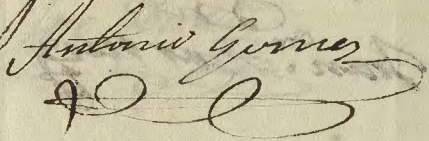 Antonio Gomes